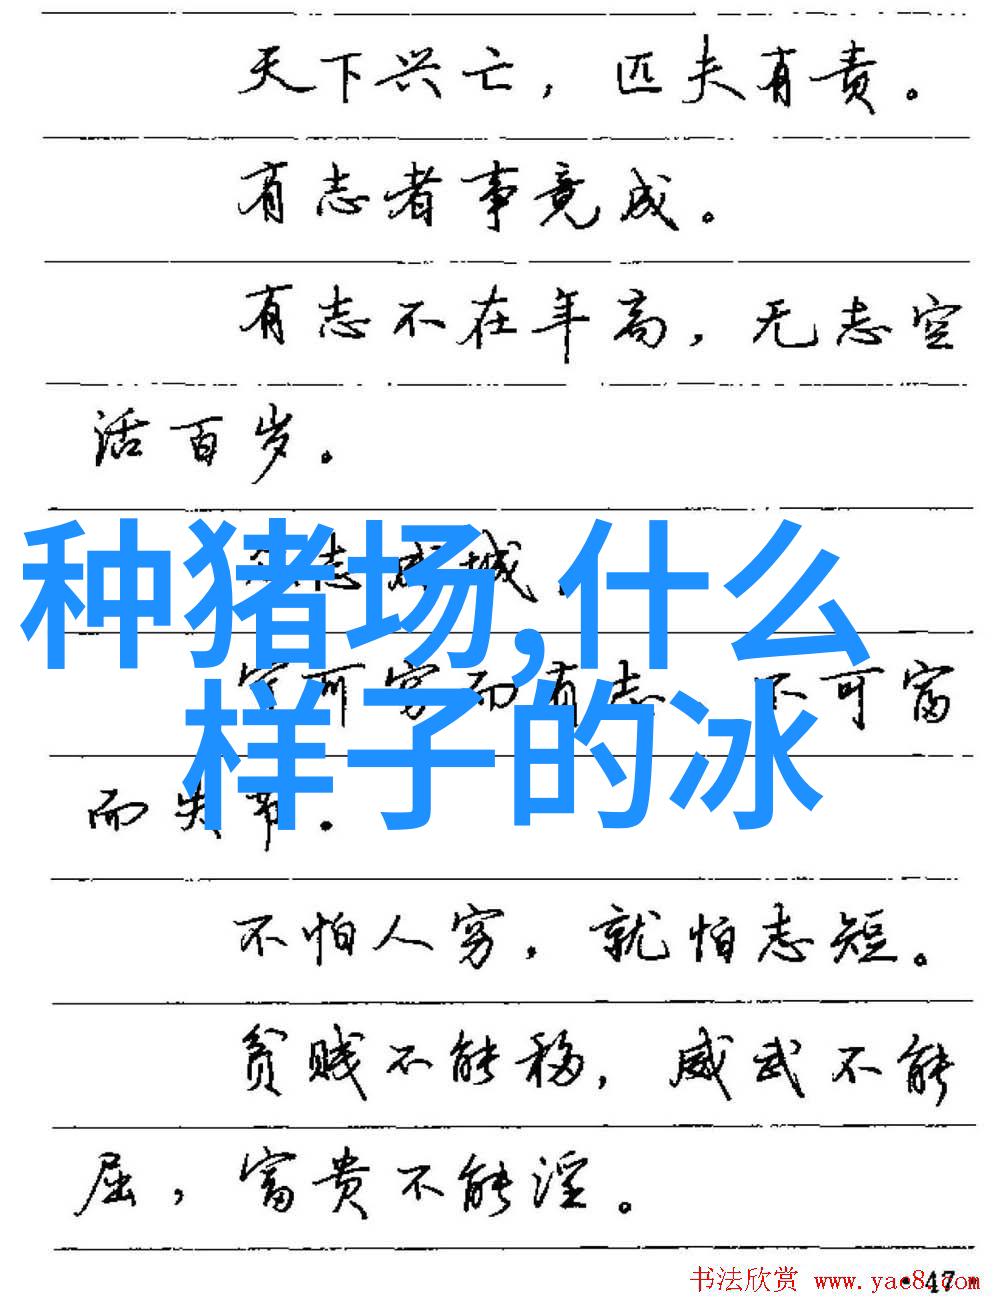 天下兴亡，匹夫有责。
有志者事竟成。
有志不在年高，无志空
活百岁。
志成城。
种猪场,什么
宁可穷而有志 不可富
样子的冰
而失节.
不怕人穷，就怕志短。
贫贱不能移，威武不能
屈，富贵不能淫。
书法欣赏 www.yac8.com
·47·